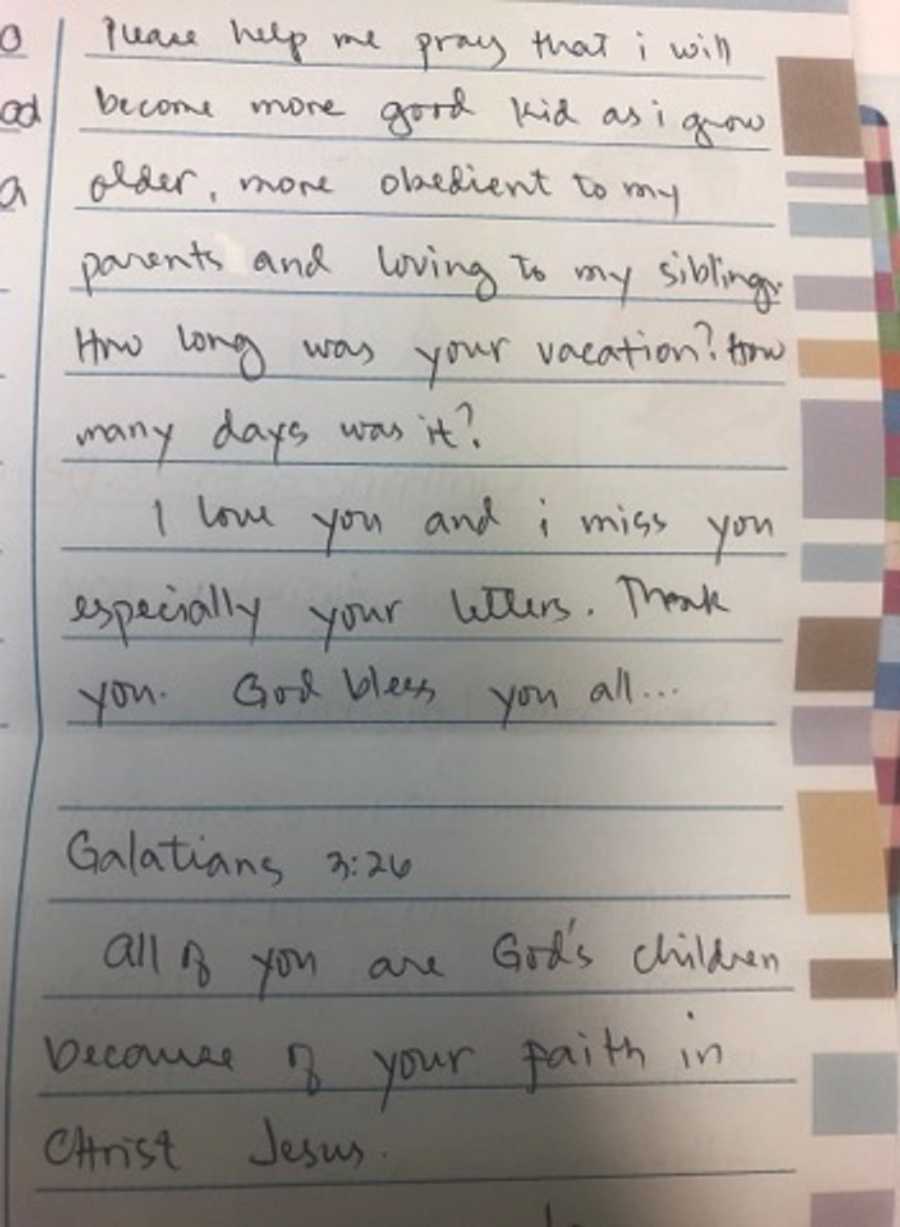 Please help me pray that i will
become more good kid as i grow
older, more obedient to my
parents and loving to my siblings.
How long was your vacation? How
many days was it?
I love you and i miss you
especially your letters. Thank
you. God bless you all...
Galatians 3:26
All of you are God's children
because of your faith in
Christ Jesus.